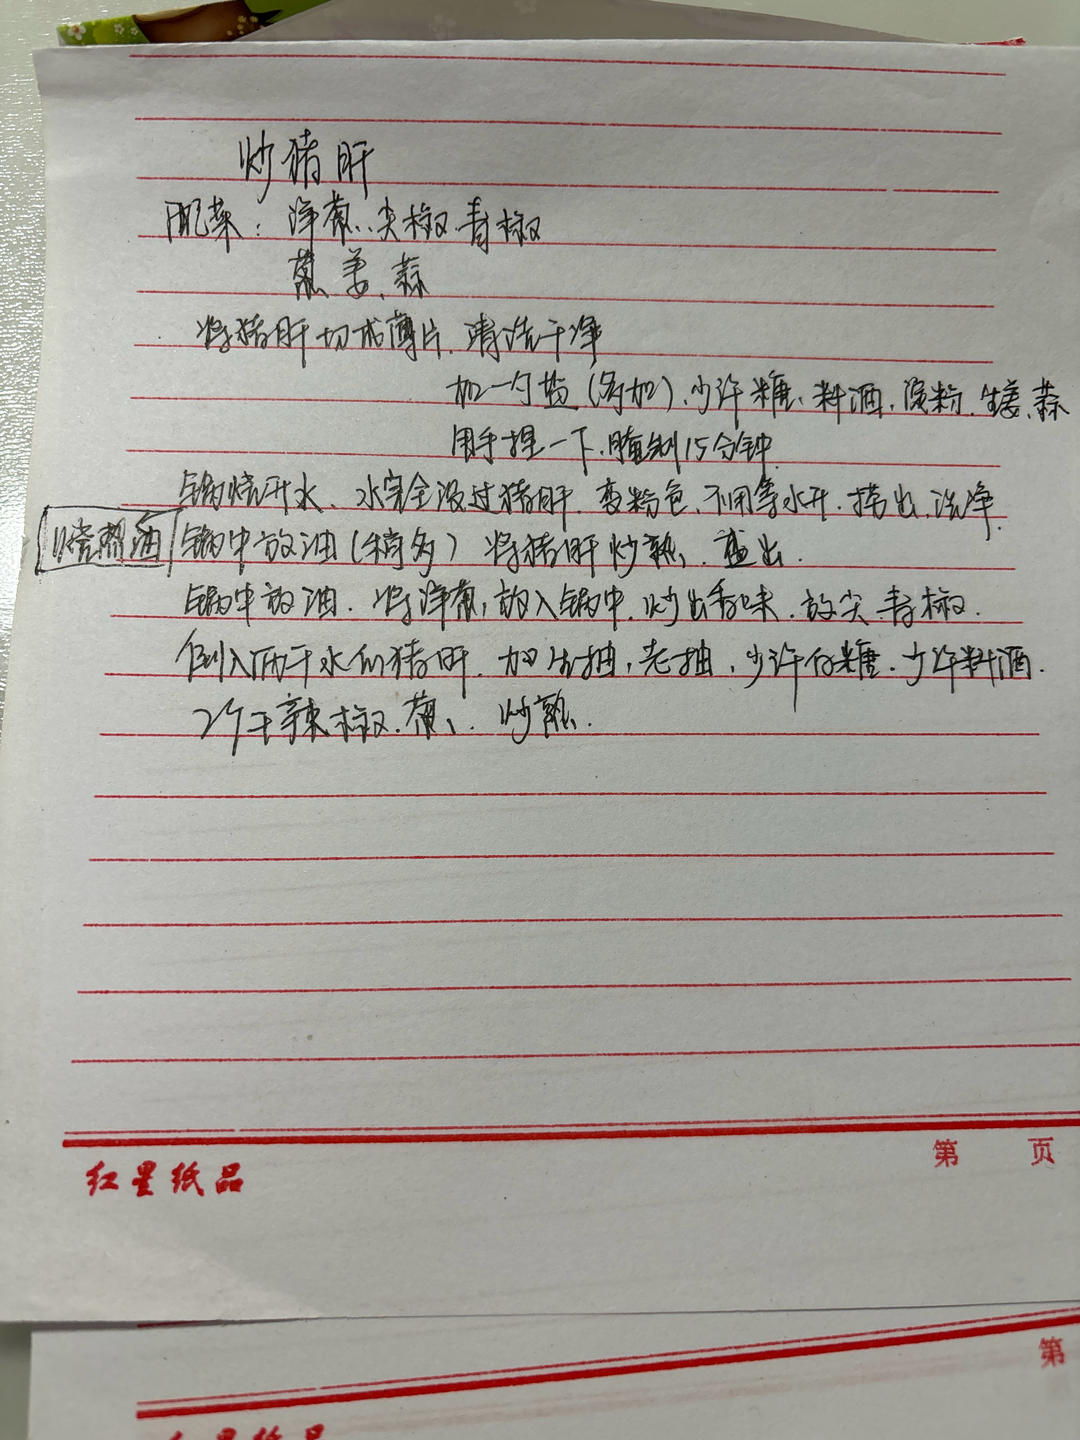 炒猪肝
配菜：洋葱、尖椒 青椒
葱 姜、蒜
将猪肝切成薄片、清洗干净
加一勺盐(多加)、少许糖、料酒、淀粉、生姜、蒜
用手捏一下、腌制15分钟
锅烧开水、水完全没过猪肝、变粉色、不用等水开、捞出、洗净
烧热油 锅中放油(稍多) 将猪肝炒熟、盛出.
锅中放油、将洋葱放入锅中、炒出香味、放尖 青椒.
倒入沥干水的猪肝、加生抽、老抽、少许白糖、少许料酒.
2个干辣椒、葱、炒熟.
红星纸品
第 页
第
红星纸品